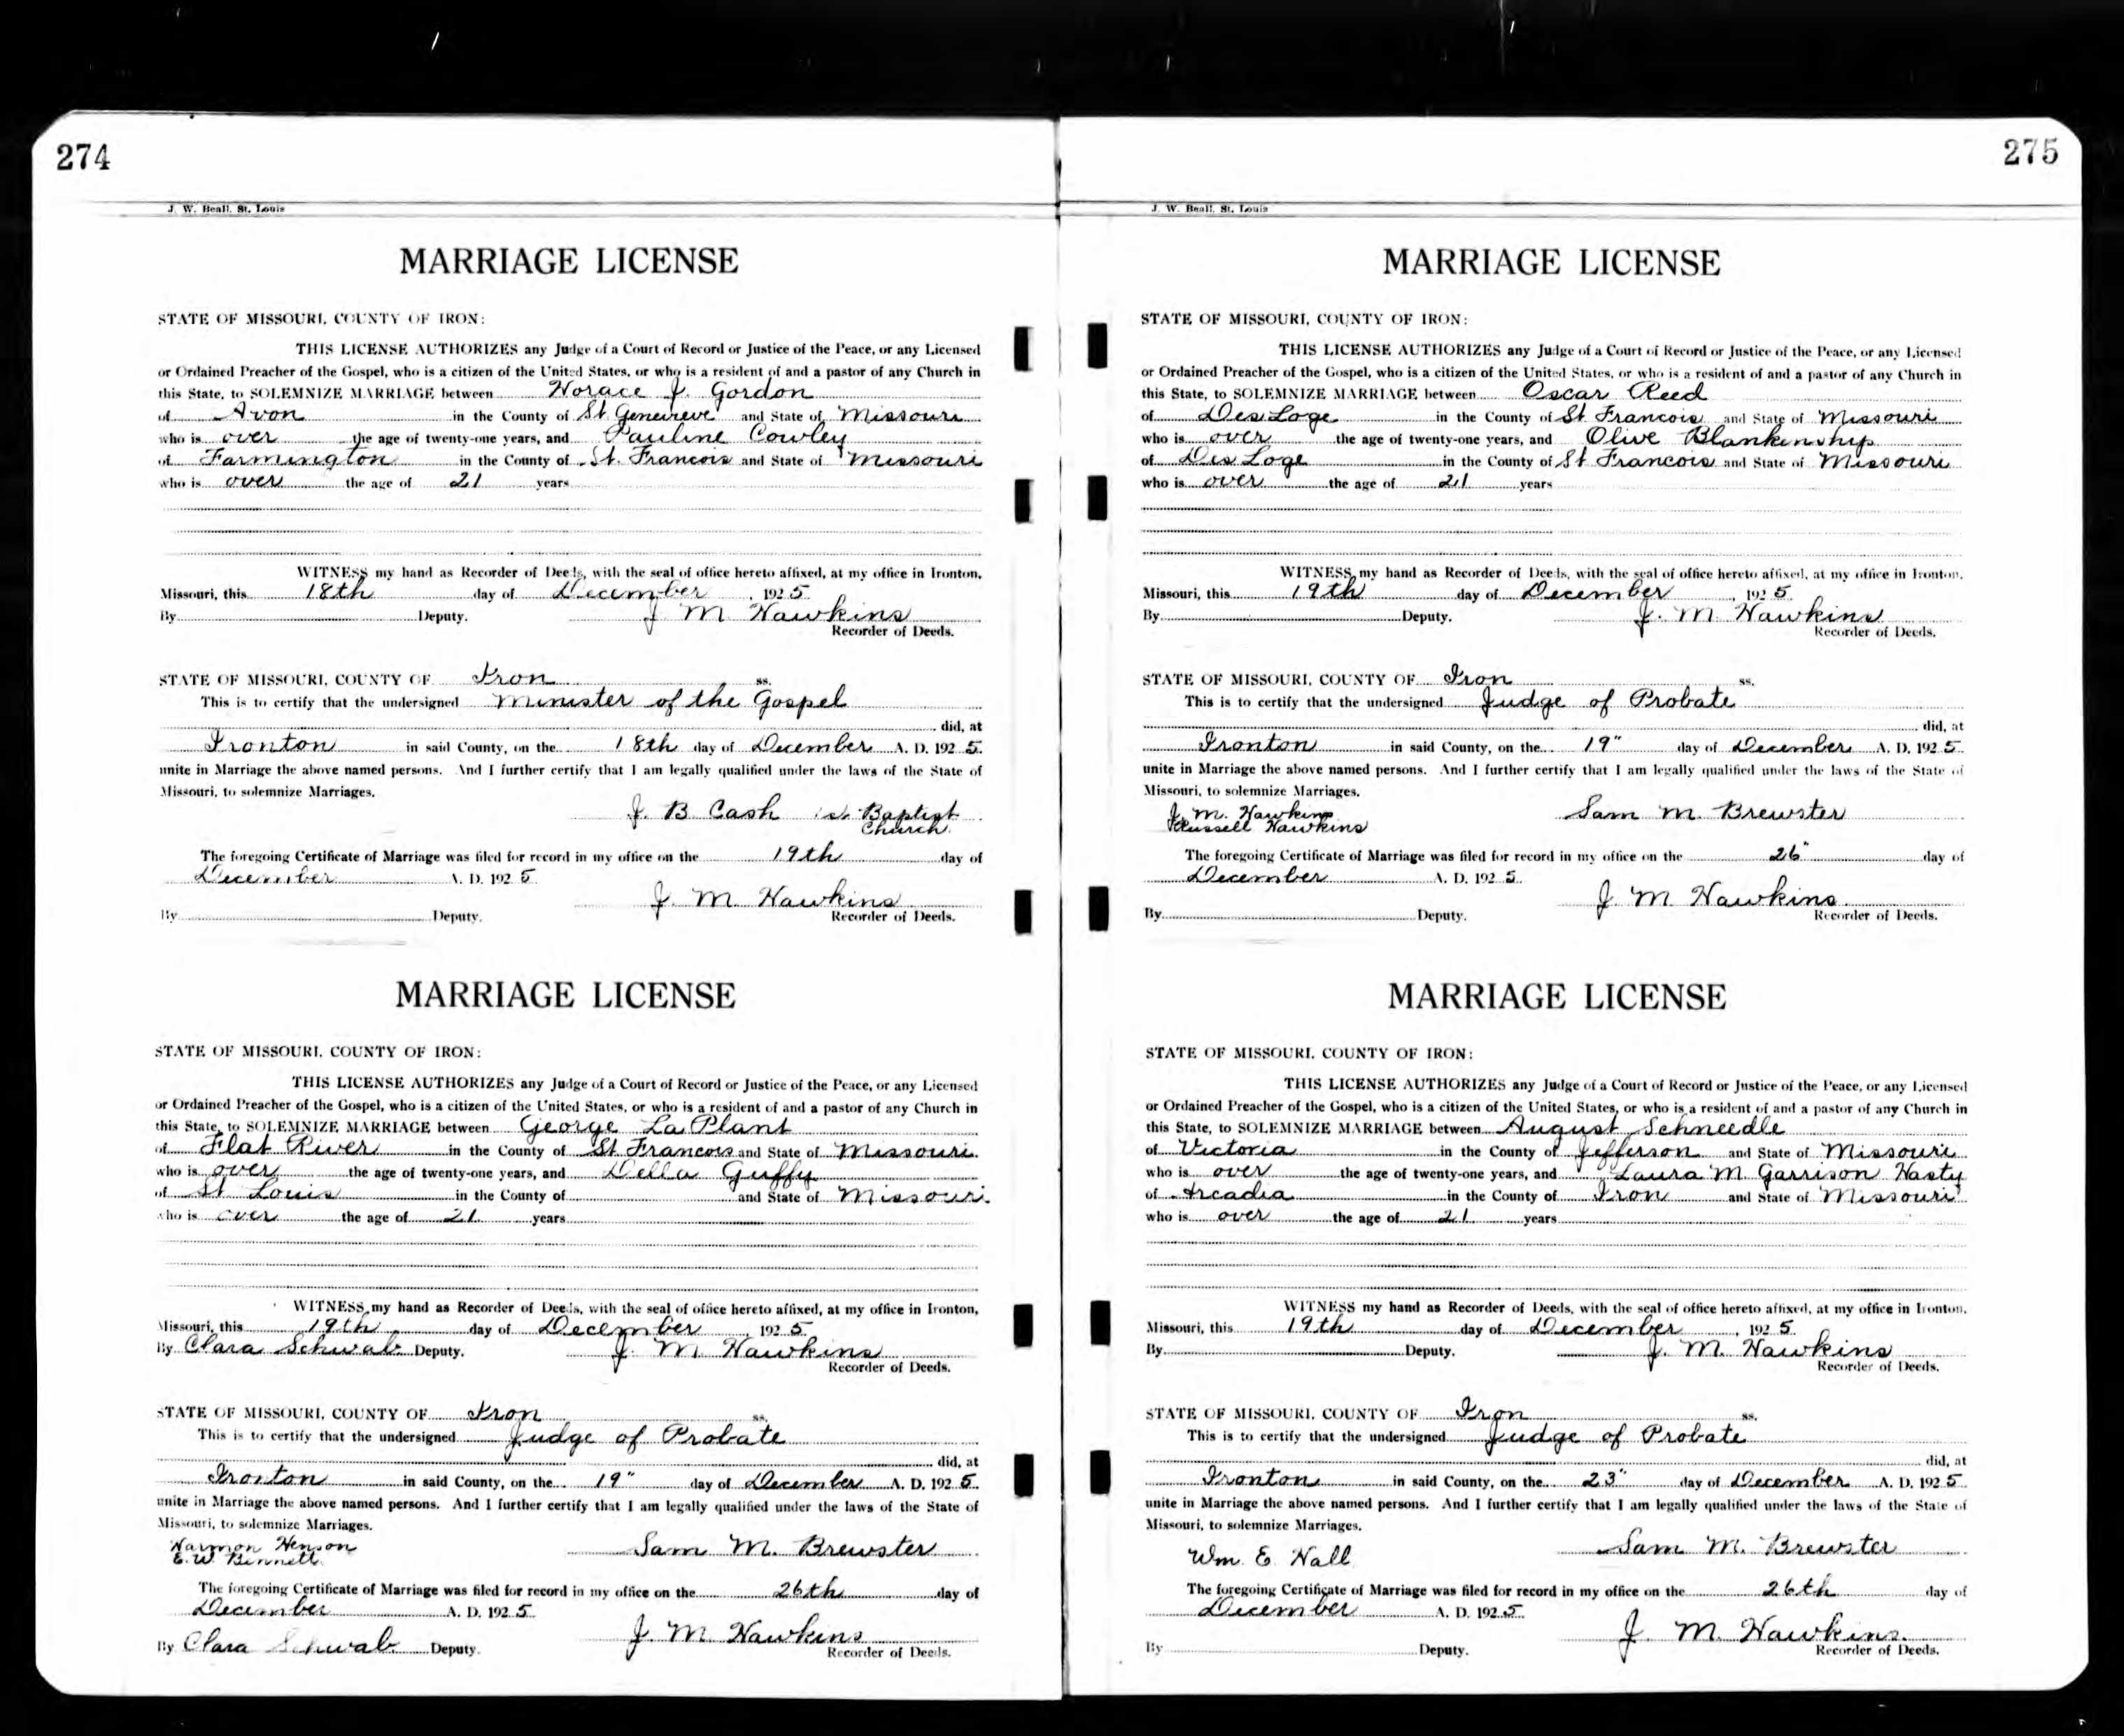 274
J. W. Beall, St. Louis
MARRIAGE LICENSE
STATE OF MISSOURI, COUNTY OF IRON:
THIS LICENSE AUTHORIZES any Judge of a Court of Record or Justice of the Peace, or any Licensed
or Ordained Preacher of the Gospel, who is a citizen of the United States, or who is a resident of and a pastor of any Church in
this State, to SOLEMNIZE MARRIAGE between Horace J. Gordon
of Avon in the County of St Genevieve and State of Missouri
who is over the age of twenty-one years, and Pauline Cowley
of Farmington in the County of St. Francois and State of Missouri
who is over the age of 21 years
WITNESS my hand as Recorder of Deeds, with the seal of office hereto affixed, at my office in Ironton,
Missouri, this 18th day of December, 1925.
By Deputy. J M Hawkins
Recorder of Deeds.
STATE OF MISSOURI, COUNTY OF Iron ss.
This is to certify that the undersigned Minister of the Gospel
did, at
Ironton in said County, on the 18th day of December A. D. 1925.
unite in Marriage the above named persons. And I further certify that I am legally qualified under the laws of the State of
Missouri, to solemnize Marriages.
J. B Cash Baptist
Church
The foregoing Certificate of Marriage was filed for record in my office on the 19th day of
December A. D. 1925
J. M Hawkins
By Deputy. Recorder of Deeds.
MARRIAGE LICENSE
STATE OF MISSOURI, COUNTY OF IRON:
THIS LICENSE AUTHORIZES any Judge of a Court of Record or Justice of the Peace, or any Licensed
or Ordained Preacher of the Gospel, who is a citizen of the United States, or who is a resident of and a pastor of any Church in
this State, to SOLEMNIZE MARRIAGE between George La Plant
of Flat River in the County of St Francois and State of Missouri
who is over the age of twenty-one years, and Della Guffy
of St Louis in the County of and State of Missouri.
who is over the age of 21 years
WITNESS my hand as Recorder of Deeds, with the seal of office hereto affixed, at my office in Ironton,
Missouri, this 19th day of December, 1925
By Clara Schwab Deputy. J. M. Hawkins
Recorder of Deeds.
STATE OF MISSOURI, COUNTY OF Iron ss.
This is to certify that the undersigned Judge of Probate
did, at
Ironton in said County, on the 19" day of December A. D. 1925.
unite in Marriage the above named persons. And I further certify that I am legally qualified under the laws of the State of
Missouri, to solemnize Marriages.
Harmon Henson
E. W. Bennett Sam M. Brewster
The foregoing Certificate of Marriage was filed for record in my office on the 26th day of
December A. D. 1925.
J. M. Hawkins
By Clara Schwab Deputy. Recorder of Deeds.
275
J. W. Beall, St. Louis
MARRIAGE LICENSE
STATE OF MISSOURI, COUNTY OF IRON:
THIS LICENSE AUTHORIZES any Judge of a Court of Record or Justice of the Peace, or any Licensed
or Ordained Preacher of the Gospel, who is a citizen of the United States, or who is a resident of and a pastor of any Church in
this State, to SOLEMNIZE MARRIAGE between Oscar Reed
of Des Loge in the County of St Francois and State of Missouri
who is over the age of twenty-one years, and Olive Blankinship
of Des Loge in the County of St Francois and State of Missouri
who is over the age of 21 years
WITNESS my hand as Recorder of Deeds, with the seal of office hereto affixed, at my office in Ironton,
Missouri, this 19th day of December, 1925.
By Deputy. J. M Hawkins
Recorder of Deeds.
STATE OF MISSOURI, COUNTY OF Iron ss.
This is to certify that the undersigned Judge of Probate
did, at
Ironton in said County, on the 19" day of December A. D. 1925.
unite in Marriage the above named persons. And I further certify that I am legally qualified under the laws of the State of
Missouri, to solemnize Marriages.
J. M. Hawkins Sam M. Brewster
Russell Hawkins
The foregoing Certificate of Marriage was filed for record in my office on the 26" day of
December A. D. 1925.
J M Hawkins
By Deputy. Recorder of Deeds.
MARRIAGE LICENSE
STATE OF MISSOURI, COUNTY OF IRON:
THIS LICENSE AUTHORIZES any Judge of a Court of Record or Justice of the Peace, or any Licensed
or Ordained Preacher of the Gospel, who is a citizen of the United States, or who is a resident of and a pastor of any Church in
this State, to SOLEMNIZE MARRIAGE between August Schneedle
of Victoria in the County of Jefferson and State of Missouri
who is over the age of twenty-one years, and Laura M. Garrison Hasty
of Arcadia in the County of Iron and State of Missouri
who is over the age of 21 years
WITNESS my hand as Recorder of Deeds, with the seal of office hereto affixed, at my office in Ironton,
Missouri, this 19th day of December, 1925.
By Deputy. J. M. Hawkins
Recorder of Deeds.
STATE OF MISSOURI, COUNTY OF Iron ss.
This is to certify that the undersigned Judge of Probate
did, at
Ironton in said County, on the 23" day of December A. D. 1925
unite in Marriage the above named persons. And I further certify that I am legally qualified under the laws of the State of
Missouri, to solemnize Marriages.
Wm. E. Hall Sam M. Brewster
The foregoing Certificate of Marriage was filed for record in my office on the 26th day of
December A. D. 1925.
J. M. Hawkins.
By Deputy. Recorder of Deeds.